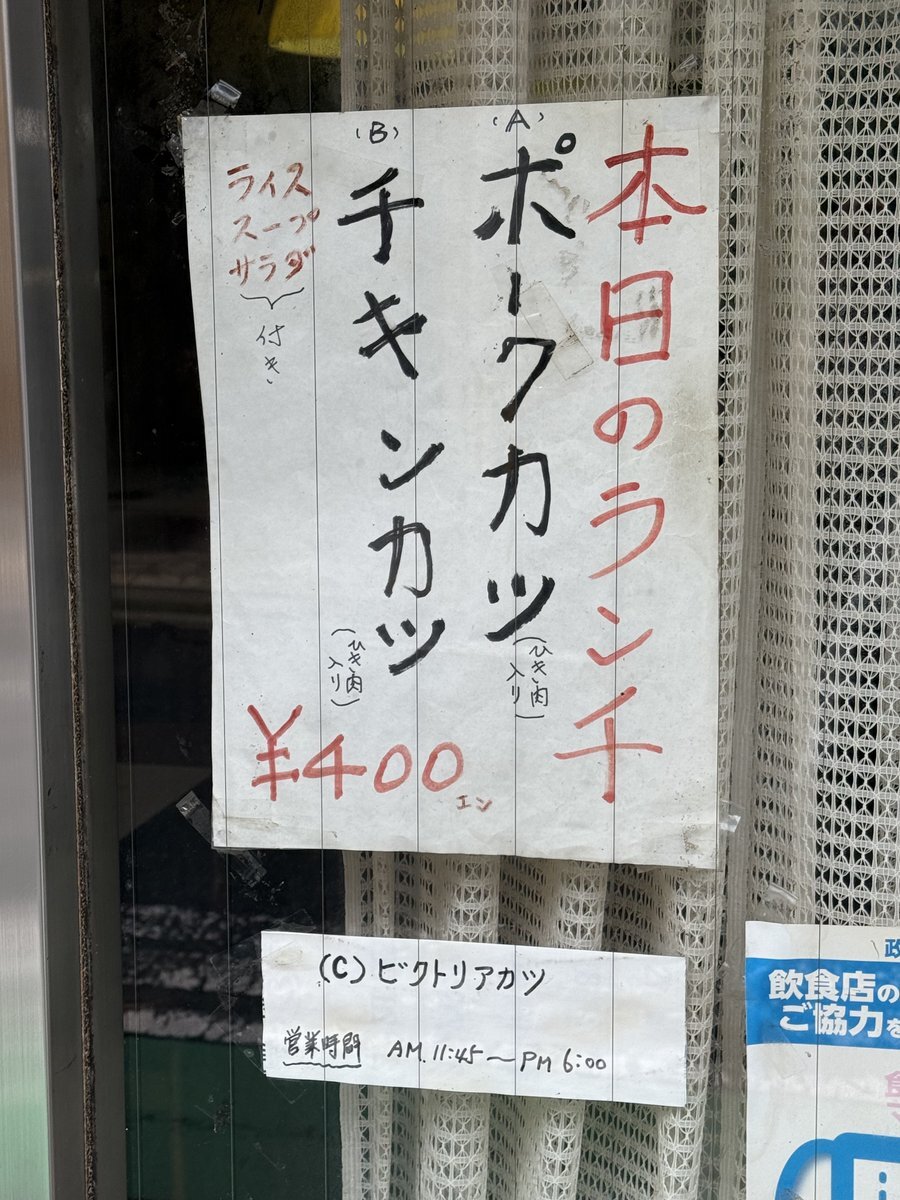 本日のランチ
(A)
ポークカツ
(ひき肉
入り)
(B)
チキンカツ
(ひき肉
入り)
ライス
スープ
サラダ
付き
¥400
エン
(C)ビクトリアカツ
営業時間 AM.11:45〜PM 6:00
政
飲食店の
ご協力を